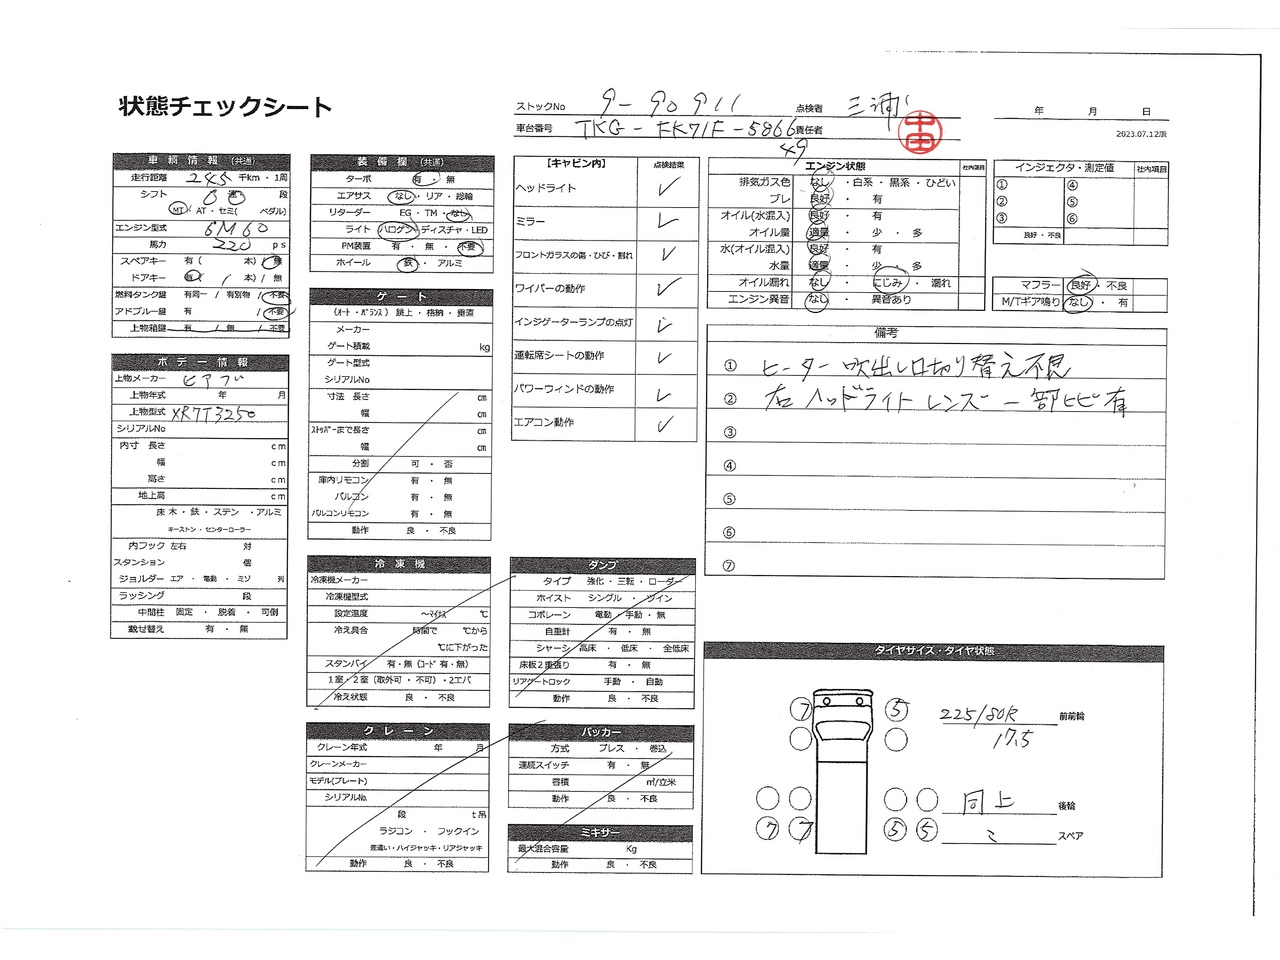 状態チェックシート
ストックNo 9-90911 点検者 三浦
年 月 日
車台番号 TKG-FK71F-5866 責任者
49
2023.07.12版
車輌情報 (共通)
走行距離 245 千km・1周
シフト 6 速 段
MT・AT・セミ( ペダル)
エンジン型式 6M60
馬力 220 ps
スペアキー 有( 本)/無
ドアキー 有( / 本)/無
燃料タンク鍵 有同一 / 有別物 / 不要
アドブルー鍵 有 / 不要
上物箱鍵 有 / 無 / 不要
ボデー情報
上物メーカー ヒアブ
上物年式 年 月
上物型式 XR7T3250
シリアルNo
内寸 長さ cm
幅 cm
高さ cm
地上高 cm
床 木・鉄・ステン・アルミ
キーストン・センターコーラー
内フック 左右 対
スタンション 個
ジョルダー エア・電動・ミゾ 列
ラッシング 段
中間柱 固定・脱着・可倒
載せ替え 有・無
装備欄 (共通)
ターボ 有・無
エアサス なし・リア・総輪
リターダー EG・TM・なし
ライト ハロゲン・ディスチャ・LED
PM装置 有・無・不要
ホイール 鉄・アルミ
ゲート
(オート・バランス) 跳上・格納・垂直
メーカー
ゲート積載 kg
ゲート型式
シリアルNo
寸法 長さ cm
幅 cm
ストッパーまで長さ cm
幅 cm
分割 可・否
庫内リモコン 有・無
バルコン 有・無
バルコンリモコン 有・無
動作 良・不良
冷凍機
冷凍機メーカー
冷凍機型式
設定温度 ～マイナス ℃
冷え具合 時間で ℃から
℃に下がった
スタンバイ 有・無 (コード 有・無)
1室・2室 (取外可・不可)・2エバ
冷え状態 良・不良
クレーン
クレーン年式 年 月
クレーンメーカー
モデル(プレート)
シリアルNo.
段 t吊
ラジコン・フックイン
差違い・ハイジャッキ・リアジャッキ
動作 良・不良
【キャビン内】 点検結果
ヘッドライト ✓
ミラー ✓
フロントガラスの傷・ひび・割れ ✓
ワイパーの動作 ✓
インジゲーターランプの点灯 ✓
運転席シートの動作 ✓
パワーウィンドの動作 ✓
エアコン動作 ✓
ダンプ
タイプ 強化・三転・ローダー
ホイスト シングル・ツイン
コボレーン 電動・手動・無
自重計 有・無
シャーシ 高床・低床・全低床
床板2重張り 有・無
リアゲートロック 手動・自動
動作 良・不良
パッカー
方式 プレス・巻込
連続スイッチ 有・無
容積 ㎥/立米
動作 良・不良
ミキサー
最大混合容量 Kg
動作 良・不良
エンジン状態 社内項目
排気ガス色 なし・白系・黒系・ひどい
ブレ 良好・有
オイル(水混入) 良好・有
オイル量 適量・少・多
水(オイル混入) 良好・有
水量 適量・少・多
オイル漏れ なし・にじみ・漏れ
エンジン異音 なし・異音あり
インジェクタ・測定値 社内項目
① ④
② ⑤
③ ⑥
良好・不良
マフラー 良好・不良
M/Tギア鳴り なし・有
備考
① ヒーター吹出し口切り替え不良
② 右ヘッドライトレンズ一部ヒビ有
③
④
⑤
⑥
⑦
タイヤサイズ・タイヤ状態
7 5 225/80R 前前輪
17.5
同上 後輪
7 7 5 5 ミ スペア